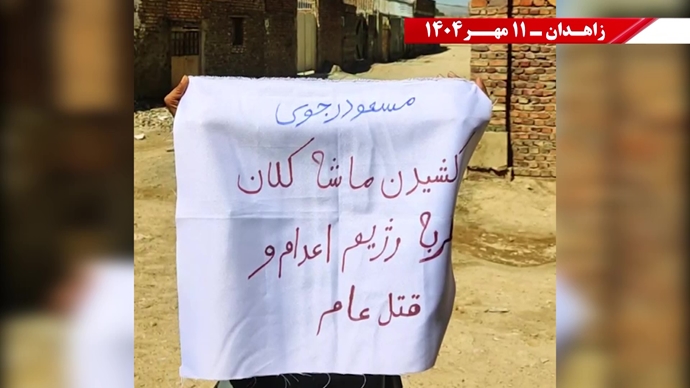 زاهـدان ــ ۱۱ مهــر ۱۴۰۴
مسعود رجوی
کشیدن ماشه کلان
رژیم اعدام و
قتل عام